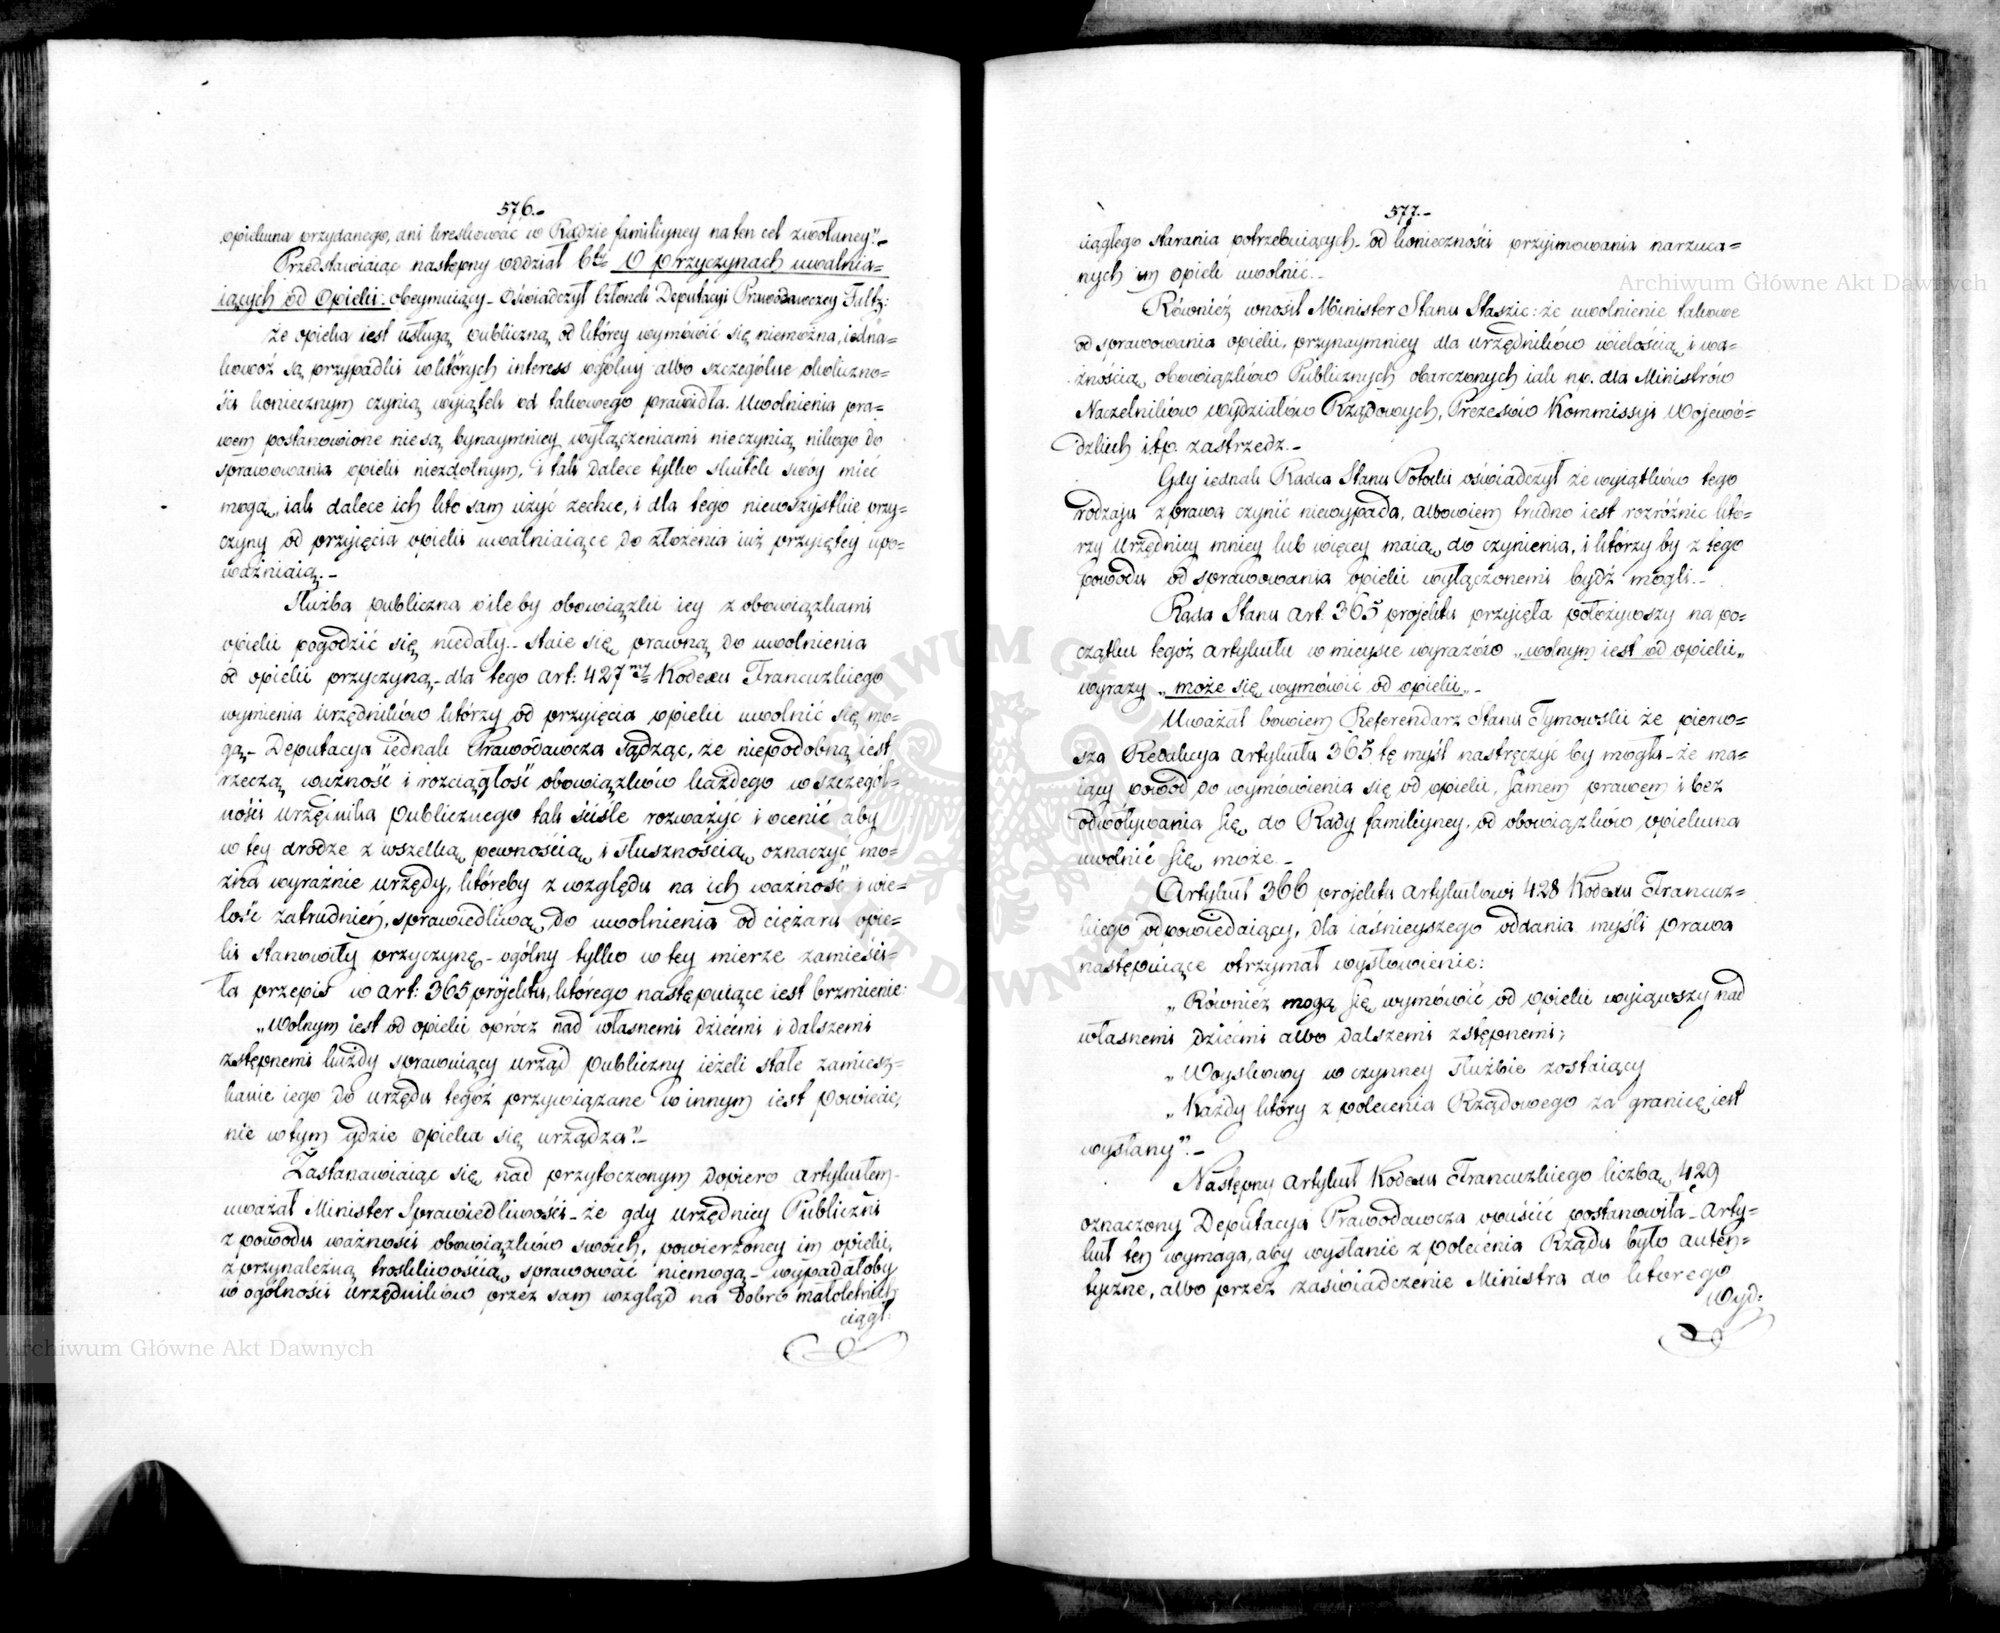 576.-
opiekuna przydanego, ani kreskować w Radzie familiyney na ten cel zwołaney".-
Przedstawiaiąc następny oddział 6ty O przyczynach uwalnia=
iących od Opieki: obeymuiący - Oświadczył Członek Deputacyi Prawodawczey Faltz:
że opieka iest usługą publiczną od którey wymówić się niemożna, iedna=
kowoż są przypadki w których interess ogólny albo szczególne okoliczno=
ści koniecznym czynią wyiątek od takowego prawidła. Uwolnienia pra=
wem postanowione nie są bynaymniey wyłączeniami nieczynią nikogo do
sprawowania opieki niezdolnym, i tak dalece tylko skutek swóy mieć
mogą, iak dalece ich kto sam użyć zechce, i dla tego niewszystkie przy=
czyny od przyięcia opieki uwalniaiące do złożenia iuż przyiętey upo=
ważniaią.-
Służba publiczna oile by obowiązki iey z obowiązkami
opieki pogodzić się niedały - staie się prawną do uwolnienia
od opieki przyczyną - dla tego art: 427my Kodexu Francuzkiego
wymienia urzędników którzy od przyięcia opieki uwolnić się mo=
gą - Deputacya iednak Prawodawcza sądząc, że niepodobną iest
rzeczą ważność i rozciągłość obowiązków każdego w szczegól=
ności urzędnika publicznego tak ściśle rozważyć i ocenić aby
w tey drodze z wszelką pewnością i słusznością oznaczyć mo=
żna wyraźnie urzędy, któreby z względu na ich ważność i wie=
lość zatrudnień, sprawiedliwą do uwolnienia od ciężaru opie=
ki stanowiły przyczynę - ogólny tylko w tey mierze zamieści=
ła przepis w art: 365 projektu, którego następuiące iest brzmienie:
„Wolnym iest od opieki oprócz nad własnemi dziećmi i dalszemi
zstępnemi każdy sprawuiący urząd publiczny ieżeli stałe zamiesz=
kanie iego do urzędu tegóż przywiązane w innym iest powiecie,
nie w tym gdzie opieka się urządza".-
Zastanawiaiąc się nad przytoczonym dopiero artykułem
uważał Minister Sprawiedliwości - że gdy urzędnicy Publiczni
z powodu ważności obowiązków swoich, powierzoney im opieki,
z przynależną troskliwością sprawować niemogą - wypadałoby
w ogólności urzędników przez sam wzgląd na dobro małoletnich
ciągł:
577.-
ciągłego starania potrzebuiących - od konieczności przyjmowania narzuca=
nych im opiek uwolnić.-
Również wnosił Minister Stanu Staszic: że uwolnienie takowe
od sprawowania opieki, przynaymniey dla urzędników wielością i wa=
żnością obowiązków Publicznych obarczonych iak np. dla Ministrów
Naczelników wydziałów Rządowych, Prezesów Kommissyi Wojewó=
dzkich itp. zastrzedz.-
Gdy iednak Radca Stanu Potocki oświadczył że wyiątków tego
rodzaju z prawa czynić niewypada, albowiem trudno iest rozróżnic któ=
rzy urzędnicy mniey lub więcey maią do czynienia, i którzy by z tego
powodu od sprawowania opieki wyłączonemi bydź mogli.-
Rada Stanu art. 365 projektu przyięła położywszy na po=
czątku tegóż artykułu w mieysce wyrazów „wolnym iest od opieki„
wyrazy „może się wymówić od opieki„.-
Uważał bowiem Referendarz Stanu Tymowski że pierw=
sza Redakcya artykułu 365 tę myśl nastręczyć by mogła - że ma=
iący powod do wymówienia się od opieki, samem prawem i bez
odwoływania się do Rady familiyney, od obowiązków opiekuna
uwolnić się może.-
Artykuł 366 projektu artykułowi 428 Kodexu Francuz=
kiego odpowiedaiący, dla iaśnieyszego oddania myśli prawa
następuiące otrzymał wysłowienie:
„Również mogą się wymówić od opieki wyiąwszy nad
własnemi dziećmi albo dalszemi zstępnemi;
„Woyskowy w czynney służbie zostaiący
„Każdy który z polecenia Rządowego za granicę iest
wysłany".-
Następny artykuł Kodexu Francuzkiego liczbą 429
oznaczony Deputacya Prawodawcza opuścić postanowiła - Arty=
kuł ten wymaga, aby wysłanie z polecenia Rządu było auten=
tyczne, albo przez zaświadczenie Ministra do którego
wyd:
Archiwum Główne Akt Dawnych
Archiwum Główne Akt Dawnych